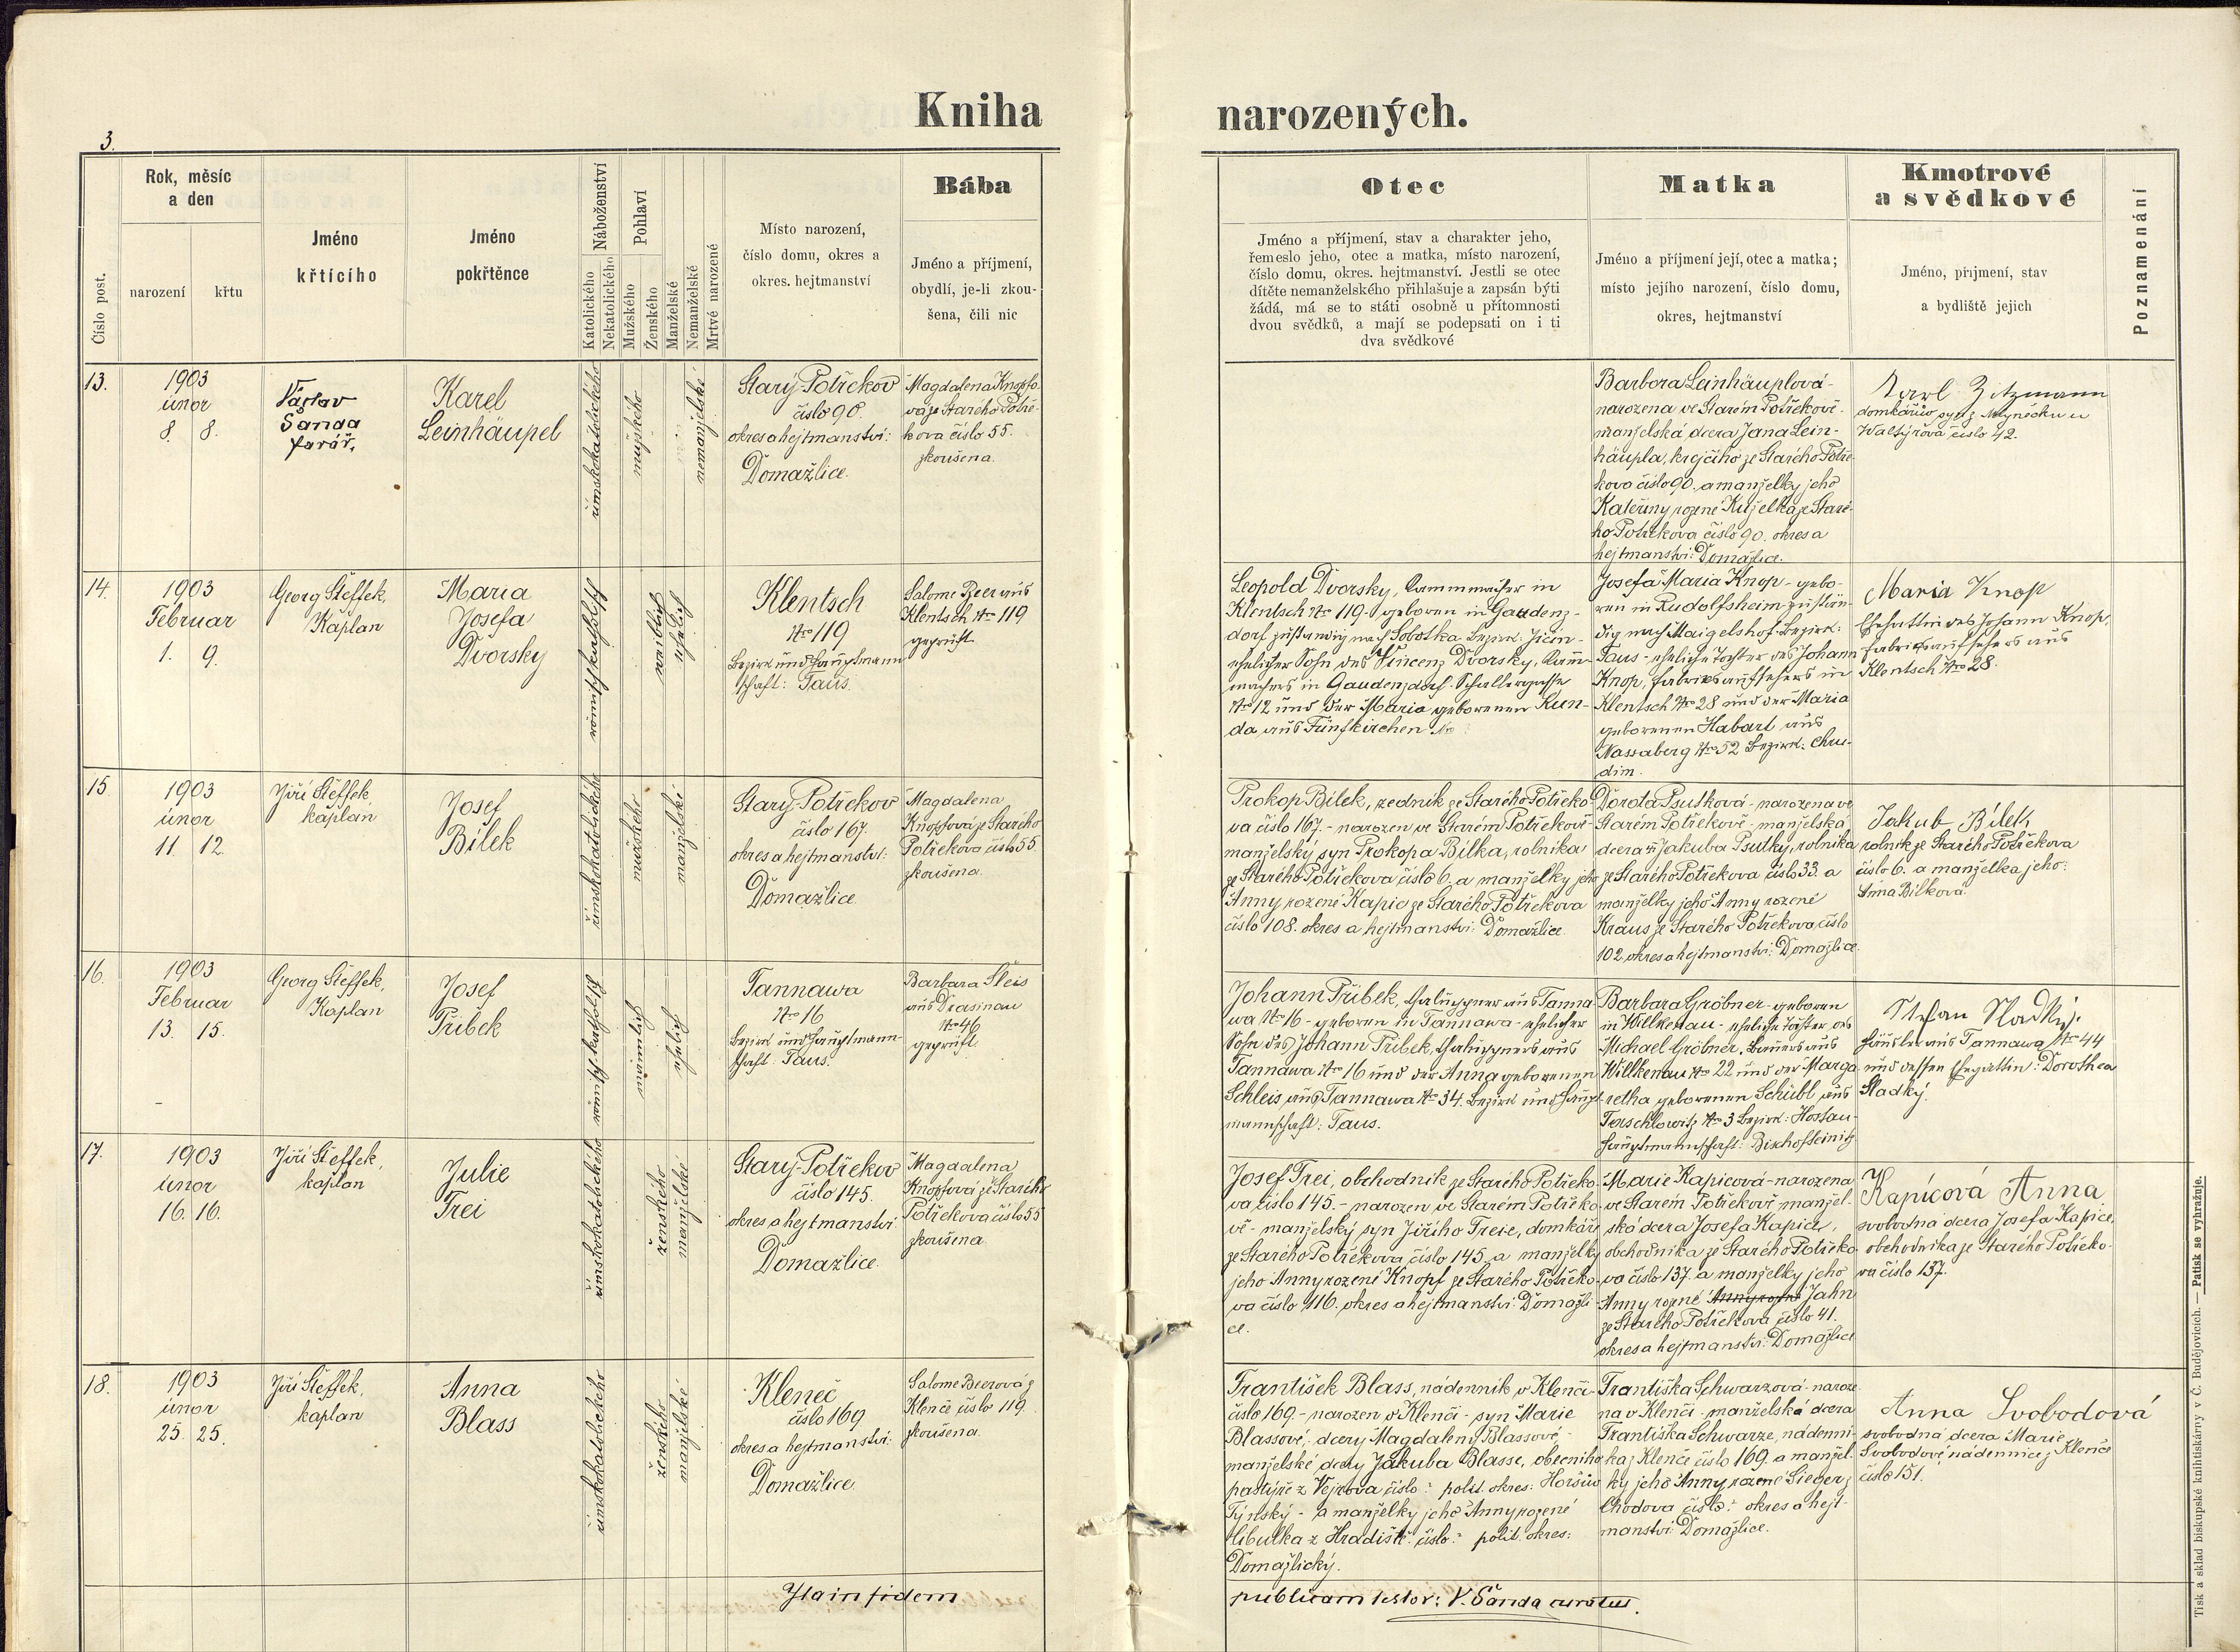 3.
Kniha narozených.
Číslo post.
Rok, měsíc
a den
narození
křtu
Jméno
křtícího
Jméno
pokřtěnce
Náboženství
Katolického
Nekatolického
Pohlaví
Mužského
Ženského
Manželské
Nemanželské
Mrtvé narozené
Místo narození,
číslo domu, okres a
okres. hejtmanství
Bába
Jméno a příjmení,
obydlí, je-li zkou-
šena, čili nic
Otec
Jméno a příjmení, stav a charakter jeho,
řemeslo jeho, otec a matka, místo narození,
číslo domu, okres. hejtmanství. Jestli se otec
dítěte nemanželského přihlašuje a zapsán býti
žádá, má se to státi osobně u přítomnosti
dvou svědků, a mají se podepsati on i ti
dva svědkové
Matka
Jméno a příjmení její, otec a matka;
místo jejího narození, číslo domu,
okres, hejtmanství
Kmotrové
a svědkové
Jméno, příjmení, stav
a bydliště jejich
Poznamenání
13.
1903
únor
8. 8.
Václav
Šanda
farář.
Karel
Leinhäupel
římskokatolického
mužského
nemanželské
Starý-Potřekov
číslo 90.
okres a hejtmanství:
Domažlice.
Magdalena Knopfo-
vá ze Starého Potře-
kova číslo 55.
zkoušena.
Barbora Leinhäuplová-
narozena ve Starém Potřekově-
manželská dcera Jana Lein-
häupla, krejčího ze Starého Potře-
kova číslo 90. a manželky jeho
Kateřiny rozené Kuželka ze Staré-
ho Potřekova číslo 90. okres a
hejtmanství: Domažlice.
Karl Zitzmann
domkářův syn z
číslo 42.
14.
1903
Februar
1. 9.
Georg Steffek,
Kaplan
Maria
Josefa
Dvorsky
römisch-katholisch
weiblich
ehelich
Klentsch
Nro 119
Bezirk und Hauptmann-
schaft: Taus.
Salome Beer aus
Klentsch Nro 119
geprüft.
Leopold Dvorsky, Kammmacher in
Klentsch Nro 119 - geboren in Gaudenz-
dorf zuständig nach Sobotka Bezirk: Jičin -
ehelicher Sohn des Vincenz Dvorsky, Kamm-
machers in Gaudenzdorf
Nro 12 und der Maria geborenen Kun-
da aus Fünfkirchen Nro
Josefa Maria Knop - gebo-
ren in Rudolfsheim zustän-
dig nach Maigelshof Bezirk:
Taus - eheliche Tochter des Johann
Knop, Fabriksaufsehers in
Klentsch Nro 28 und der Maria
geborenen Habart aus
Nassaberg Nro 52 Bezirk: Chru-
dim.
Maria Knop
Ehegattin des Johann Knop,
Fabriksaufsehers aus
Klentsch Nro 28.
15.
1903
únor
11. 12.
Jiří Steffek,
kaplan
Josef
Bílek
římskokatolického
mužského
manželské
Starý-Potřekov
číslo 167.
okres a hejtmanství:
Domažlice
Magdalena
Knopfová ze Starého
Potřekova číslo 55
zkoušena.
Prokop Bílek, zedník ze Starého Potřeko-
va číslo 167. - narozen ve Starém Potřekově-
manželský syn Prokopa Bílka, rolníka
ze Starého Potřekova číslo 6. a manželky jeho
Anny rozené Kapic ze Starého Potřekova
číslo 108. okres a hejtmanství: Domažlice.
Dorota Psutková - narozena ve
Starém Potřekově - manželská
dcera Jakuba Psutky, rolníka
ze Starého Potřekova číslo 33. a
manželky jeho Anny rozené
Kraus ze Starého Potřekova číslo
102. okres a hejtmanství: Domažlice.
Jakub Bílek
rolník ze Starého Potřekova
číslo 6. a manželka jeho:
Anna Bílková.
16.
1903
Februar
13. 15.
Georg Steffek,
Kaplan
Josef
Přibek
römisch-katholisch
männlich
ehelich
Tannawa
Nro 16
Bezirk und Hauptmann-
schaft: Taus.
Barbara Sleis
aus Drasinau
Nro 46
geprüft
Johann Přibek, aus Tanna-
wa Nro 16 - geboren in Tannawa - ehelicher
Sohn des Johann Přibek, aus
Tannawa Nro 16 und der Anna geborenen
Schleis aus Tannawa Nro 34. Bezirk und Haupt-
mannschaft: Taus.
Barbara Gröbner - geboren
in Willkenau - eheliche Tochter des
Michael Gröbner, Bauers aus
Willkenau Nro 22 und der Marga-
retha geborenen Schübl aus
Taschlowitz Nro 3 Bezirk: Hostau -
Hauptmannschaft: Bischofteinitz.
Stefan Sladký.
Häusler aus Tannawa Nro 44
und dessen Ehegattin: Dorothea
Sladký.
17.
1903
únor
16. 16.
Jiří Steffek,
kaplan
Julie
Trei
římskokatolického
ženského
manželské
Starý-Potřekov
číslo 145.
okres a hejtmanství
Domažlice.
Magdalena
Knopfová ze Starého
Potřekova číslo 55
zkoušena.
Josef Trei, obchodník ze Starého Potřeko-
va číslo 145. - narozen ve Starém Potřeko-
vě - manželský syn Jiřího Treie, domkáře
ze Starého Potřekova číslo 145. a manželky
jeho Anny rozené Knopf ze Starého Potřeko-
va číslo 116. okres a hejtmanství: Domažli-
ce.
Marie Kapicová - narozena
ve Starém Potřekově manžel-
ská dcera Josefa Kapice,
obchodníka ze Starého Potřeko-
va číslo 137. a manželky jeho
Anny rozené Anny rozené Jahn
ze Starého Potřekova číslo 41.
okres a hejtmanství: Domažlice
Kapícová Anna
svobodná dcera Josefa Kapice,
obchodníka ze Starého Potřeko-
va číslo 137.
18.
1903
únor
25. 25.
Jiří Steffek,
kaplan
Anna
Blass
římskokatolického
ženského
manželské
Kleneč
číslo 169.
okres a hejtmanství:
Domažlice.
Salome Beerová z
Klenče číslo 119.
zkoušena.
František Blass, nádenník v Klenči
číslo 169. - narozen v Klenči - syn Marie
Blassové, dcery Magdaleny Blassové -
manželské dcery Jakuba Blasse, obecního
pastýře z Vejrova číslo: polit. okres: Horšův
Týnský - a manželky jeho Anny rozené
Cibulka z Hradiště číslo: polit. okres:
Domažlický.
Františka Schwarzová - naroze-
na v Klenči - manželská dcera
Františka Schwarze, nádenní-
ka z Klenče číslo 169. a manžel-
ky jeho Anny rozené Sieger z
Chodova číslo: okres a hejt-
manství: Domažlice.
Anna Svobodová
svobodná dcera Marie
Svobodové nádennice z Klenče
číslo 151.
In fidem
publicam testor: V. Šanda curatus.
Tisk a sklad biskupské knihtiskárny v Č. Budějovicích. — Patisk se vyhražuje.